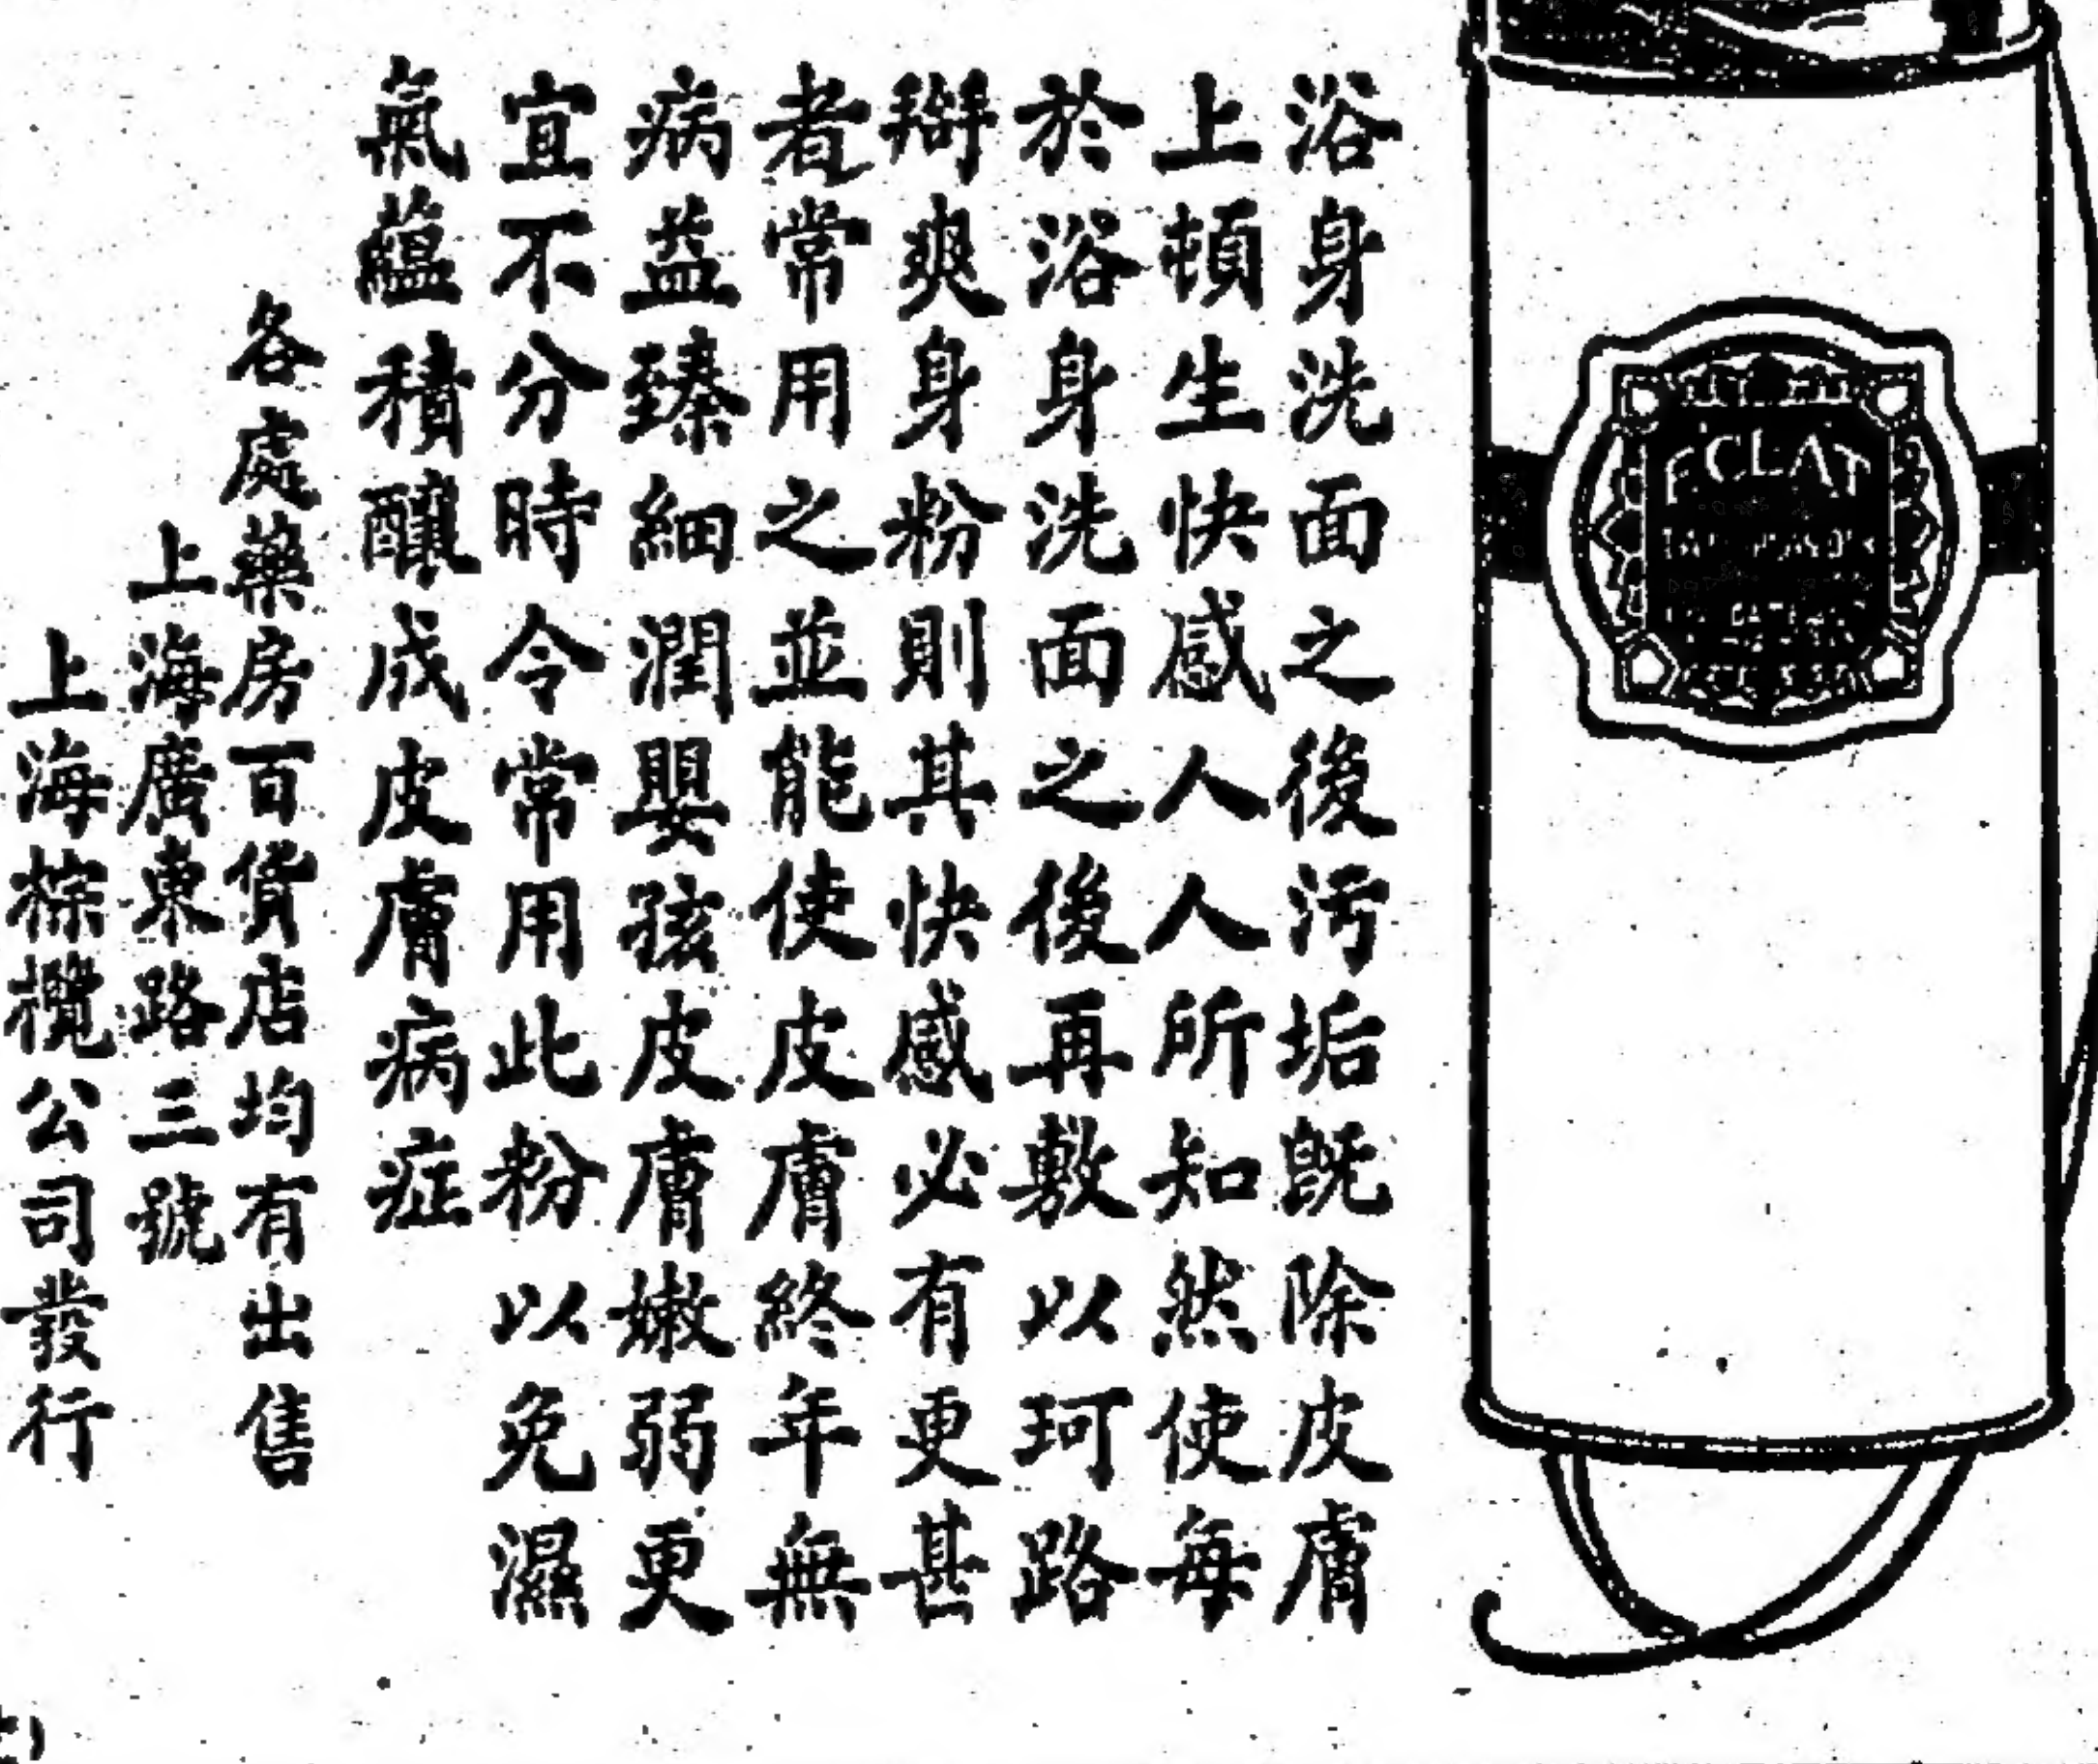 浴身洗面之後污垢旣除皮膚
上頓生快感人人所知然使每
於浴身洗面之後再敷以珂路
搿爽身粉則其快感必有更甚
者常用之並能使皮膚終年無
病益臻細潤嬰孩皮膚嫩弱更
宜不分時令常用此粉以免濕
氣蘊積釀成皮膚病症
各處藥房百貨店均有出售
上海廣東路三號
上海棕欖公司發行
ECLAT